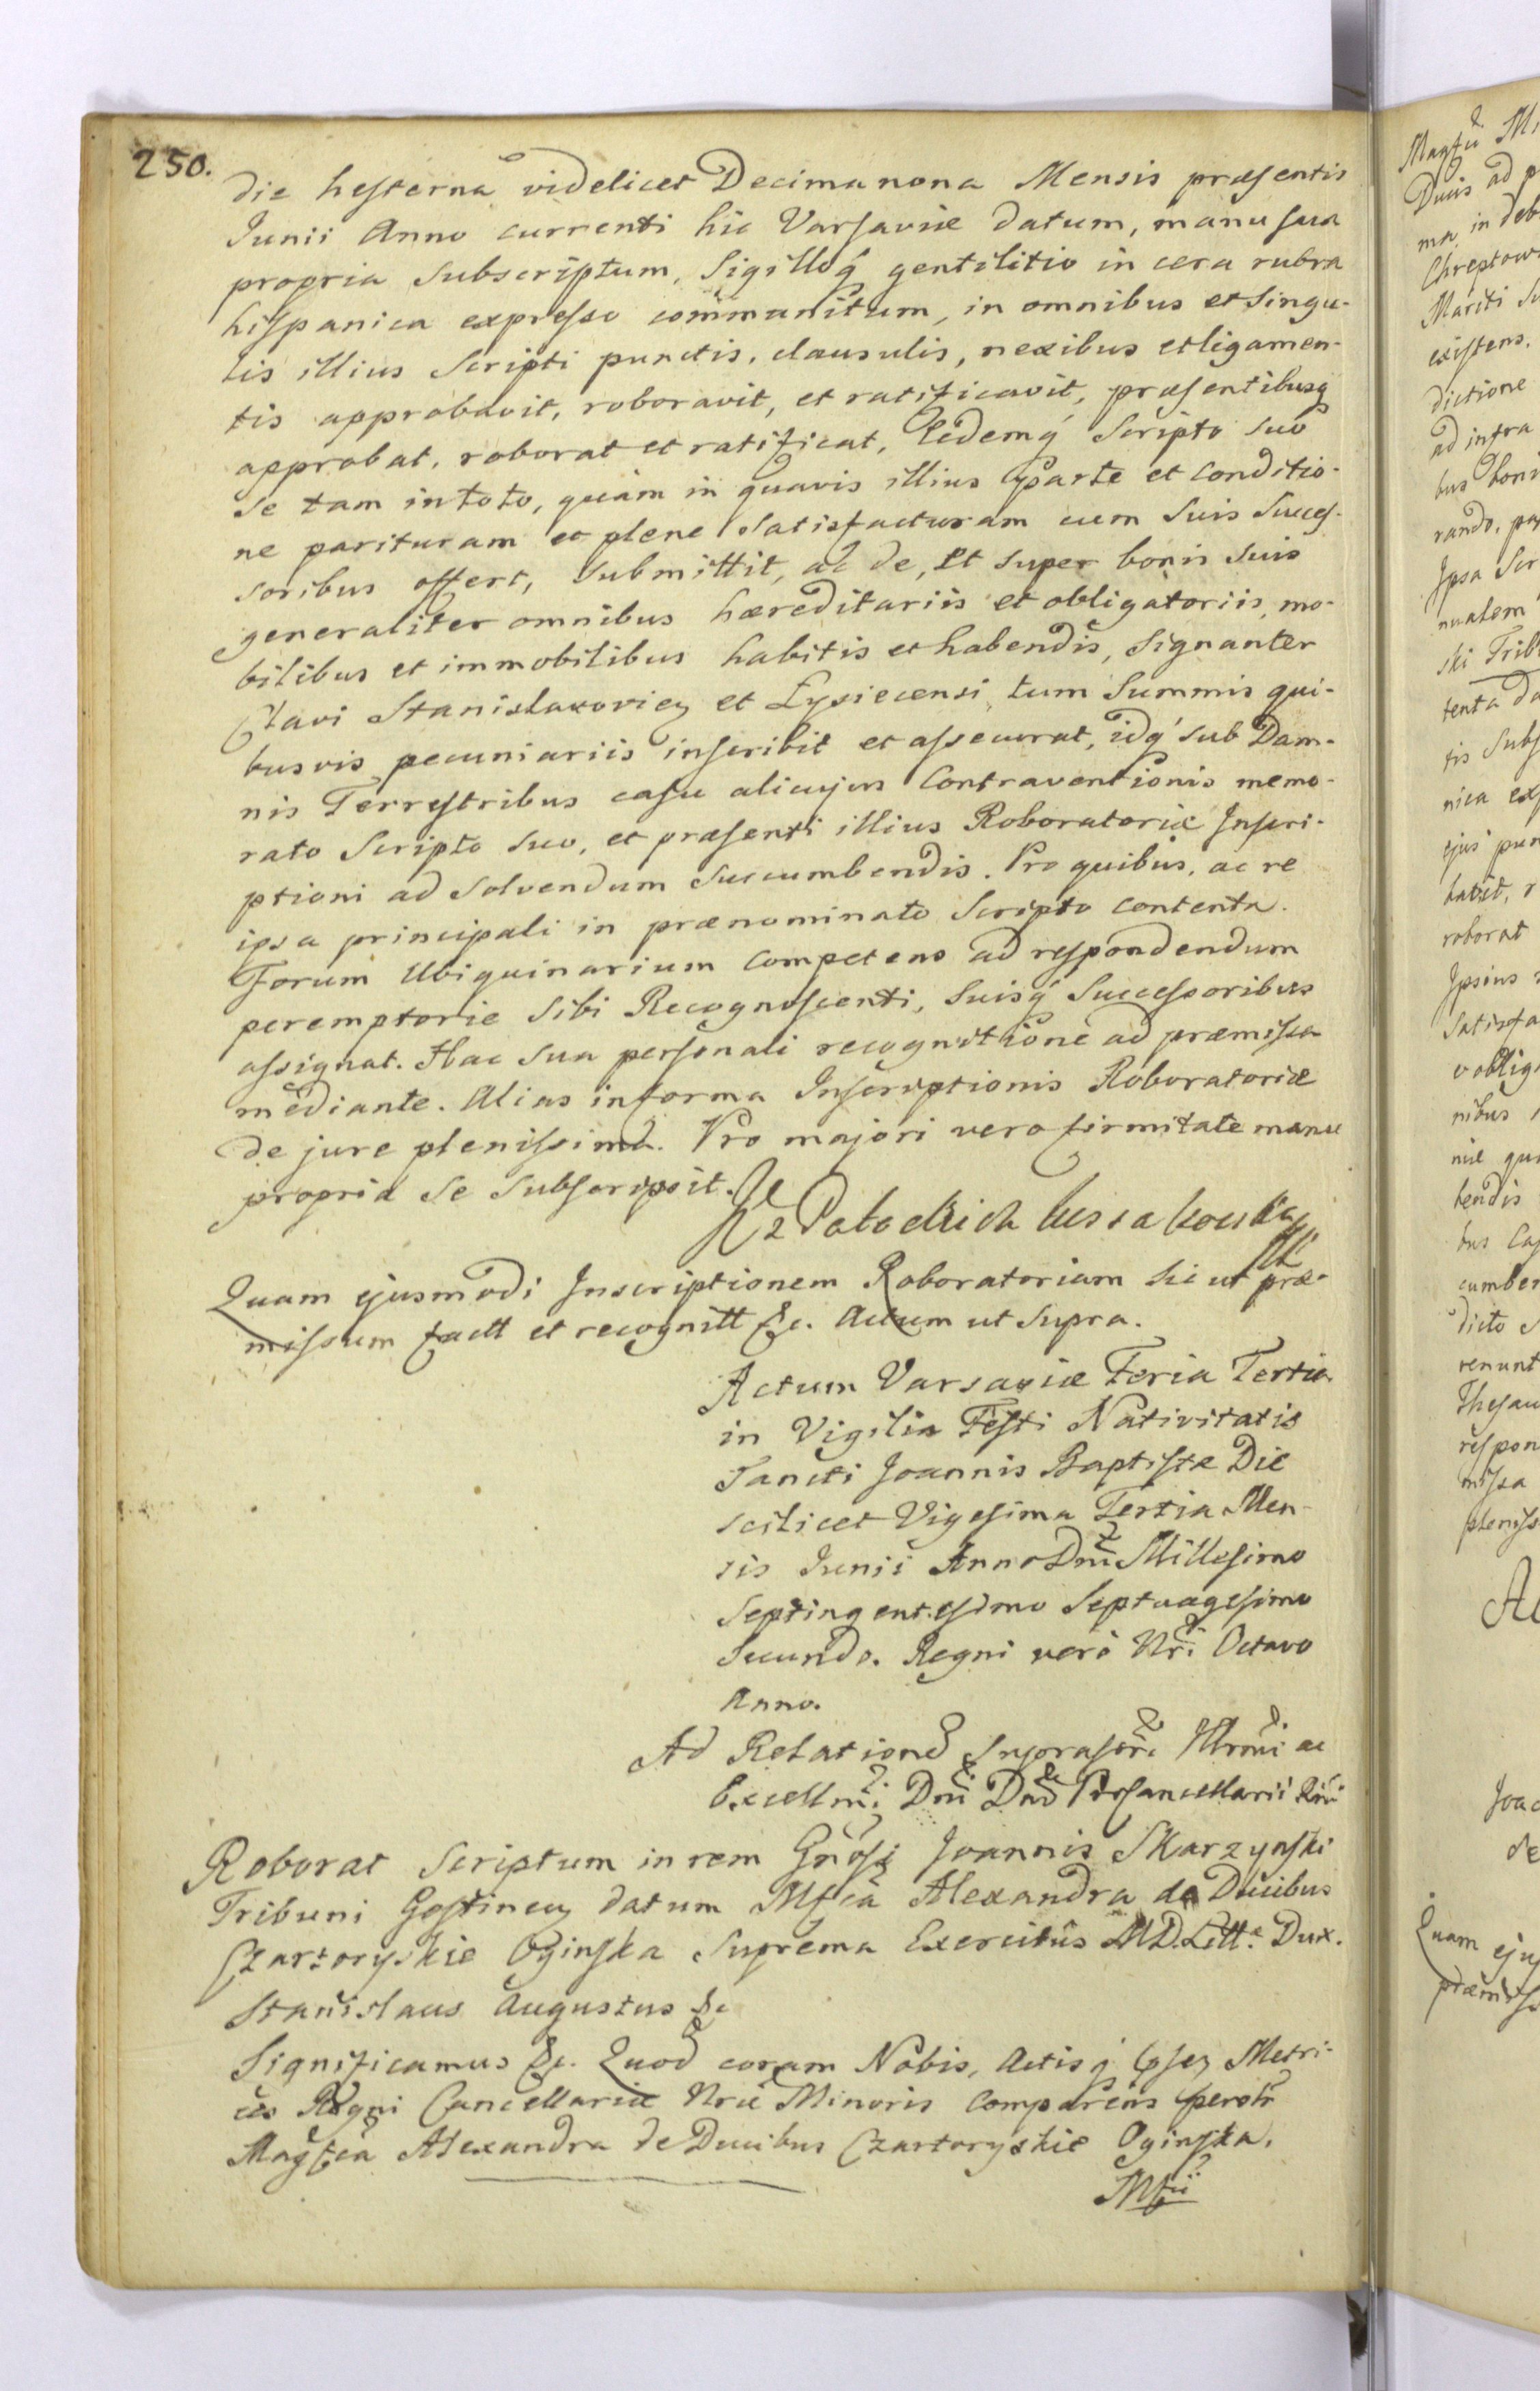 250.
die hesterna videlicet Decimanona Mensis præsentis
Junii Anno currenti hic Varsaviæ datum, manu sua
propria subscriptum, Sigilloq́ gentilitio in cera rubra
hispanica expresso com̃unitum, in omnibus et Singu-
lis illius Scripti punctis, clausulis, nexibus et ligamen-
tis approbavit, roboravit, et ratificavit, præsentibusq
approbat, roborat et ratificat, Eidemq́ Scripto suo
se tam in toto, quàm in quavis illius Parte et Conditio-
ne parituram et plene satisfacturam cum Suis Succes-
soribus offert, submittit, ac de, et super bonis suis
generaliter omnibus hæreditariis et obligatoriis, mo-
bilibus et immobilibus habitis et habendis, Signanter
Clavi Stanislaxoviey et Lysiecensi, tum Summis qui-
busvis pecuniariis inscribit et assecurat, idq́ sub Dam-
nis Terrestribus casu alicujus Contraventionis memo-
rato Scripto suo, et præsenti illius Roboratoriæ Inscri-
ptioni ad solvendum succumbendis. Pro quibus, ac re
ipsa principali in prænominato Scripto contenta.
Forum Ubiquinarium Competens ad respondendum
peremptorie Sibi Recognoscenti, Suisq́ Successoribus
assignat. Hac sua personali recognitione ad præmissa
mediante. Alias in forma Inscriptionis Roboratoriæ
de jure plenissima. Pro majori vero firmitate manu
propria Se Subscripsit.
Kossakowska
Quam ejusmodi Inscriptionem Roboratoriam sic ut præ-
missum factt et recognitt &c. Actum ut Supra.
Actum Varsaviæ Feria Tertia
in Vigilia Festi Nativitatis
Sancti Joannis Baptistæ Die
scilicet Vigesima Tertia Men-
sis Junii Anno Dn̄i Millesimo
Septingentesimo Septuagesimo
Secundo. Regni verò Nrĩ Octavo
Anno.
Ad Relationē Suprascr̃i Illrm̃i ac
Excellm̃i Dn̄i Dn̄i Procancellarii Rni
Roborat Scriptum in rem Gn̄osi Joannis Skarzynski
Tribuni Gostinen datum Mfca Alexandra de Ducibus
Czartoryskie Oginska Suprema Exercitûs M.D. Litt. Dux.
Stanislaus Augustus &c
Significamus &c. Quod coram Nobis, Actisq́ Metri-
ces Regni Cancellariæ Nræ Minoris Comparens perslr
Magfca Alexandra de Ducibus Czartoryskie Oginska.
Mfci